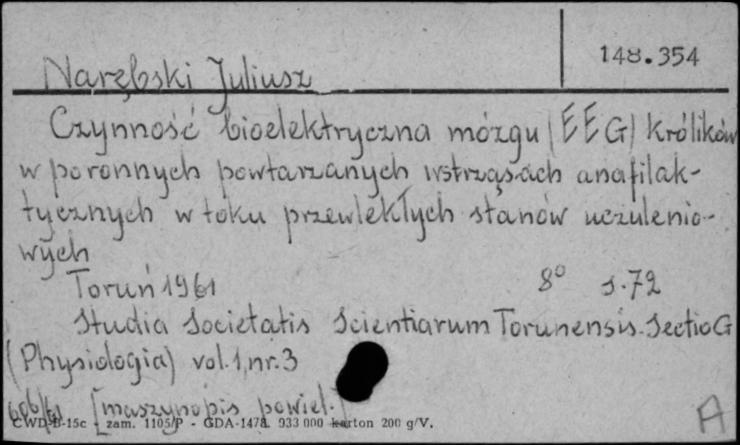 148.354
Naręբski Juliusz
Czynność bioelektryczna mózgu (EEG) królików
w poronnych powtarzanych wstrząsach anafilak-
tycznych w toku przewlekłych stanów uczulenio-
wych
Toruń 1961 8° s.72
Studia Societatis Scientiarum Torunensis. Sectio G
(Physiologia) vol.1, nr.3
606/61 [maszynopis powiel.]
CWD-B-15c - zam. 1105/P - GDA-1478. 933 000 karton 200 g/V.
A